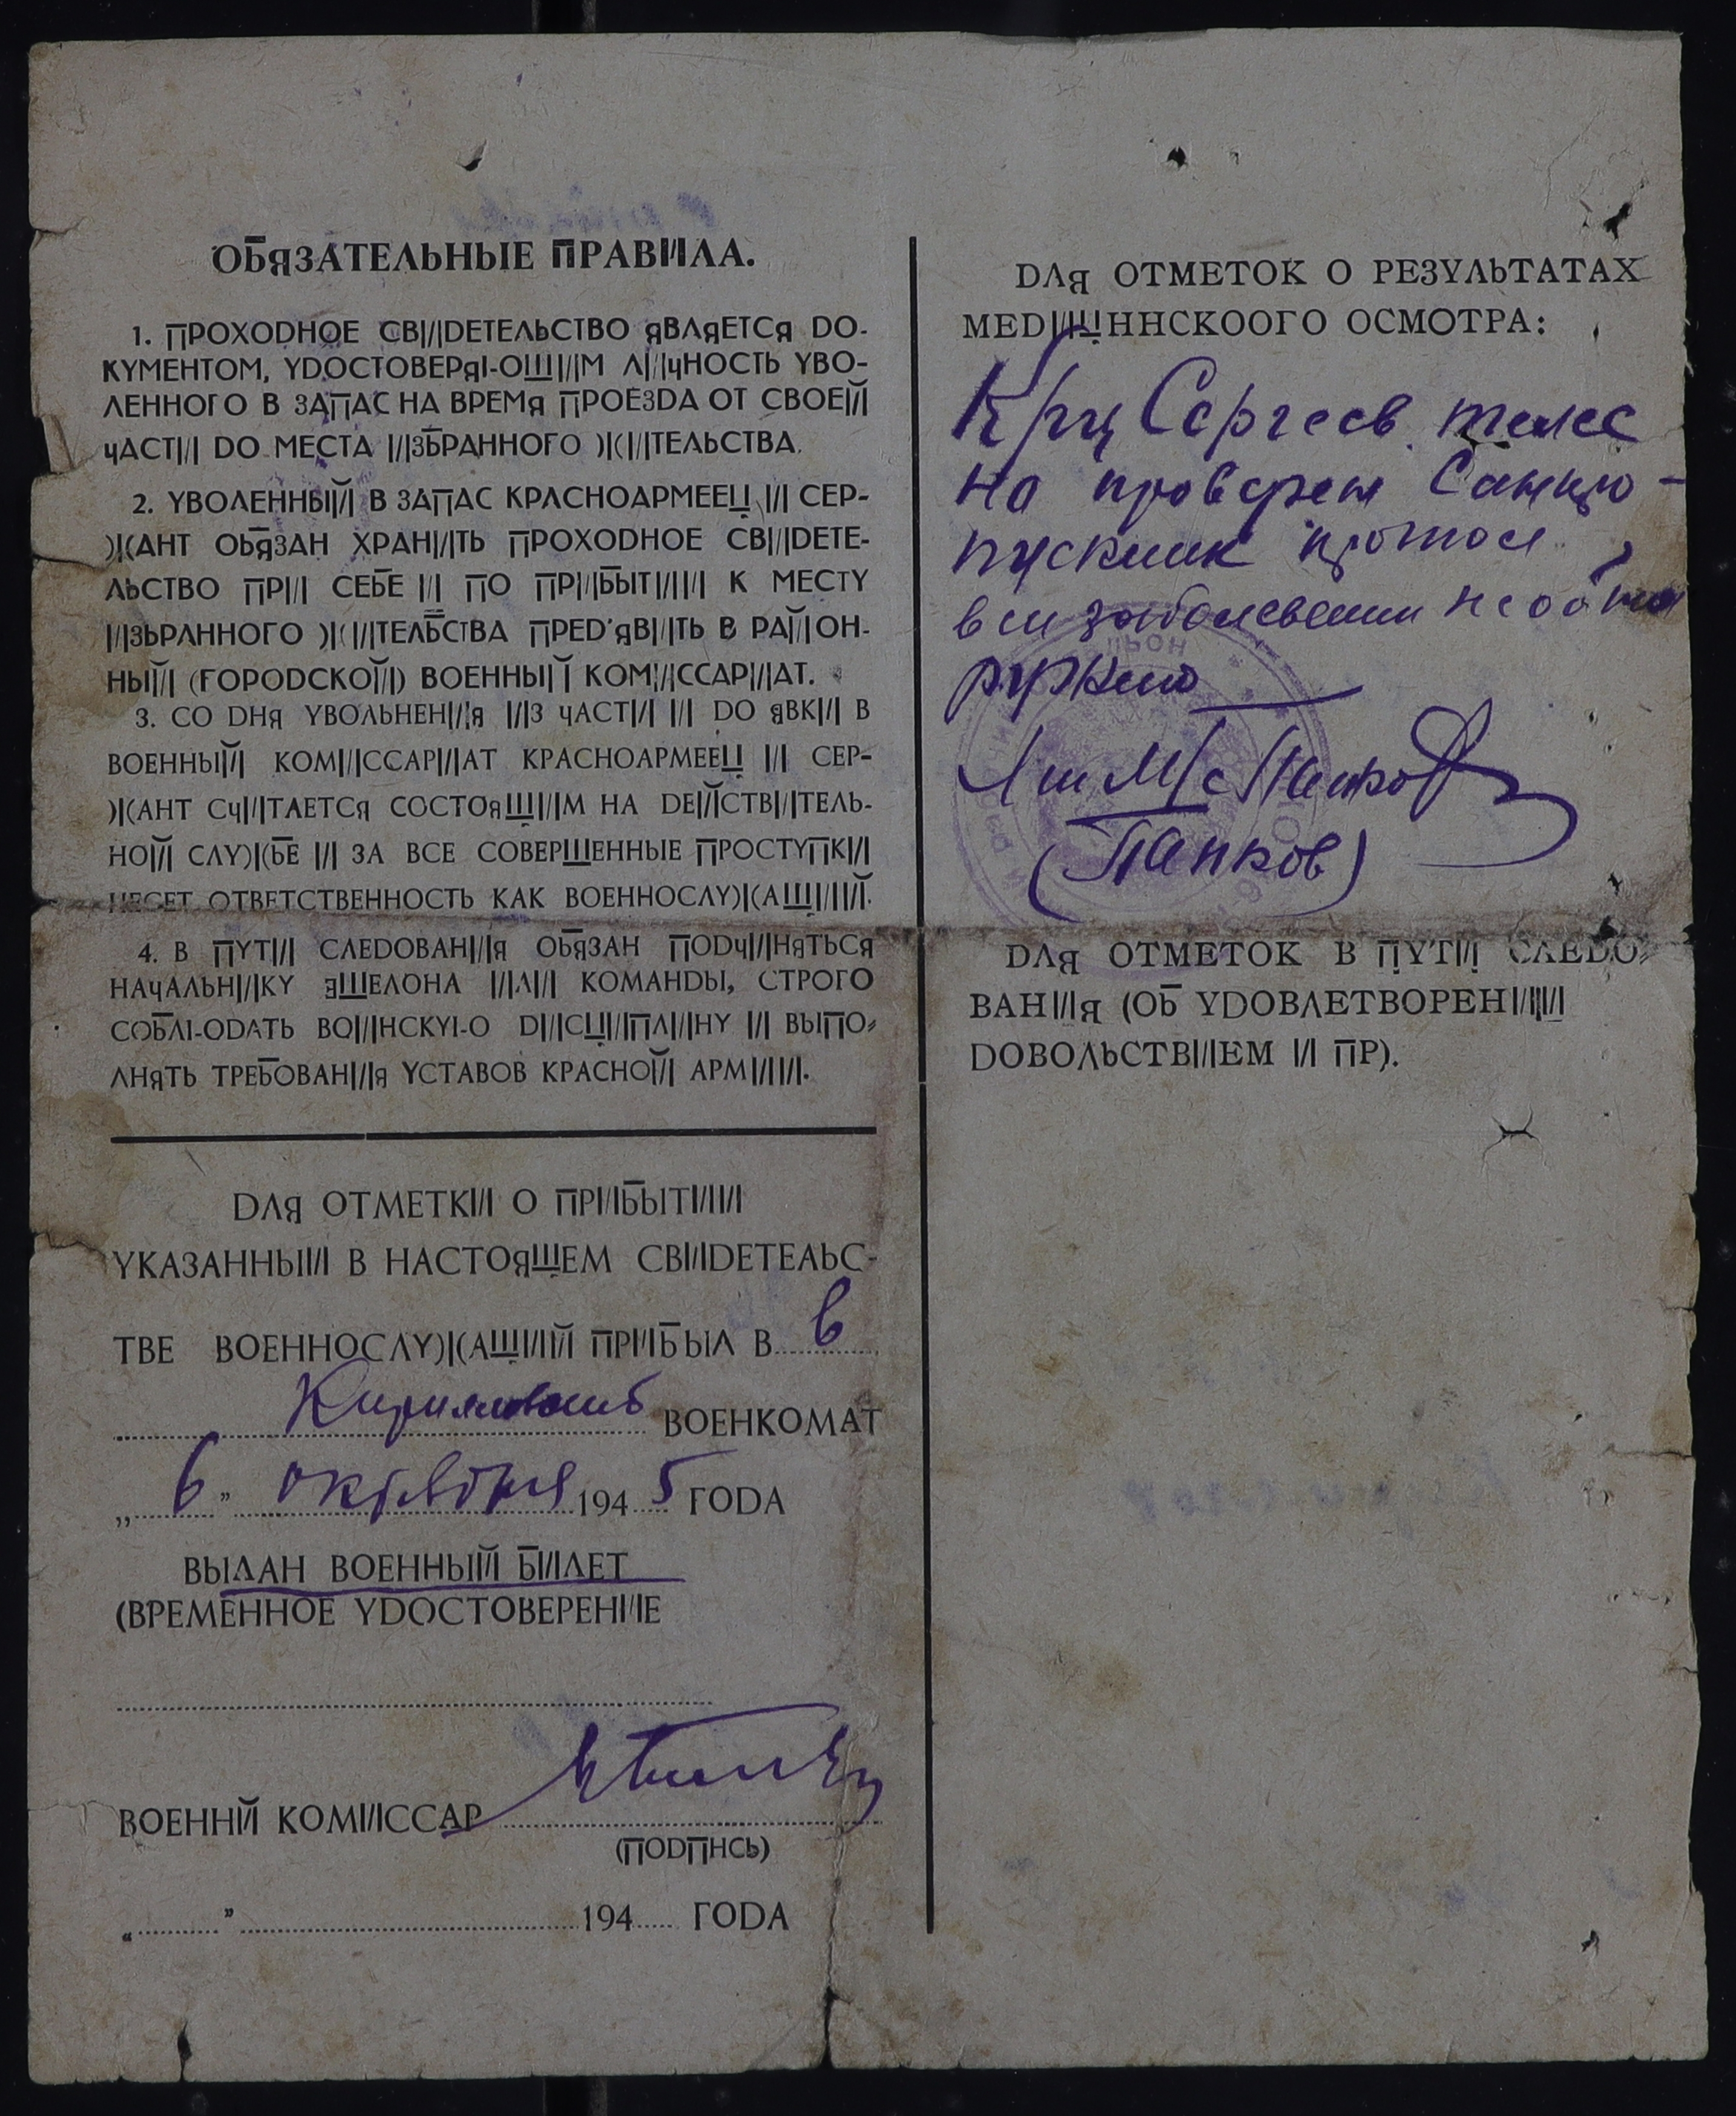 ОБЯЗАТЕЛЬНЫЕ ПРАВИЛА.
1. ПРОХОДНОЕ СВИДЕТЕЛЬСТВО ЯВЛЯЕТСЯ ДО-
КУМЕНТОМ, УДОСТОВЕРЯЮЩИМ ЛИЧНОСТЬ УВО-
ЛЕННОГО В ЗАПАС НА ВРЕМЯ ПРОЕЗДА ОТ СВОЕЙ
ЧАСТИ ДО МЕСТА ИЗБРАННОГО ЖИТЕЛЬСТВА.
2. УВОЛЕННЫЙ В ЗАПАС КРАСНОАРМЕЕЦ И СЕР-
ЖАНТ ОБЯЗАН ХРАНИТЬ ПРОХОДНОЕ СВИДЕТЕ-
ЛЬСТВО ПРИ СЕБЕ И ПО ПРИБЫТИИ К МЕСТУ
ИЗЬРАННОГО ЖИТЕЛЬСТВА ПРЕД'ЯВИТЬ В РАЙОН-
НЫЙ (ГОРОДСКОЙ) ВОЕННЫЙ КОМИССАРИАТ.
3. СО ДНЯ УВОЛЬНЕНИЯ ИЗ ЧАСТИ И ДО ЯВКИ В
ВОЕННЫЙ КОМИССАРИАТ КРАСНОАРМЕЕЦ И СЕР-
ЖАНТ СЧИТАЕТСЯ СОСТОЯЩИМ НА DЕЙСТВИТЕЛЬ-
НОЙ СЛУЖБЕ И ЗА ВСЕ СОВЕРШЕННЫЕ ПРОСТУПКИ
НЕСЕТ ОТВЕТСТВЕННОСТЬ КАК ВОЕННОСЛУЖАЩИЙ.
4. В ПУТИ СЛЕДОВАНИЯ ОБЯЗАН ПОДЧИНЯТЬСЯ
НАЧАЛЬНИКУ ЭШЕЛОНА ИЛИ КОМАНДЫ, СТРОГО
СОБЛЮДАТЬ ВОИНСКУЮ ДИСЦИПЛИНУ И ВЫПО-
ЛНЯТЬ ТРЕБОВАНИЯ УСТАВОВ КРАСНОЙ АРМИИ.
ДЛЯ ОТМЕТКИ О ПРИБЫТИИ
УКАЗАННЫИ В НАСТОЯЩЕМ СВИДЕТЕЛЬС-
ТВЕ ВОЕННОСЛУЖАЩИЙ ПРИБЫЛ В в
ВОЕНКОМАТ
"6" октября 1945 ГОДА
ВЫДАН ВОЕННЫЙ БИЛЕТ
(ВРЕМЕННОЕ УДОСТОВЕРЕНИЕ
ВОЕННЙ КОМИССАР
(ПОДПНСЬ)
" " 194 ГОДА
ДЛЯ ОТМЕТОК О РЕЗУЛЬТАТАХ
МЕДИЩННСКООГО ОСМОТРА:
Кр-ц Сергеев телес
но проверен Санпро-
пускник прошол
вш заболевании не обна
ружено
Л-т М/с Папков
(Папков)
ДЛЯ ОТМЕТОК В ПУТИ СЛЕДО-
ВАНИЯ (ОБ УДОВЛЕТВОРЕНИИ
ДОВОЛЬСТВИЕМ И ПР).